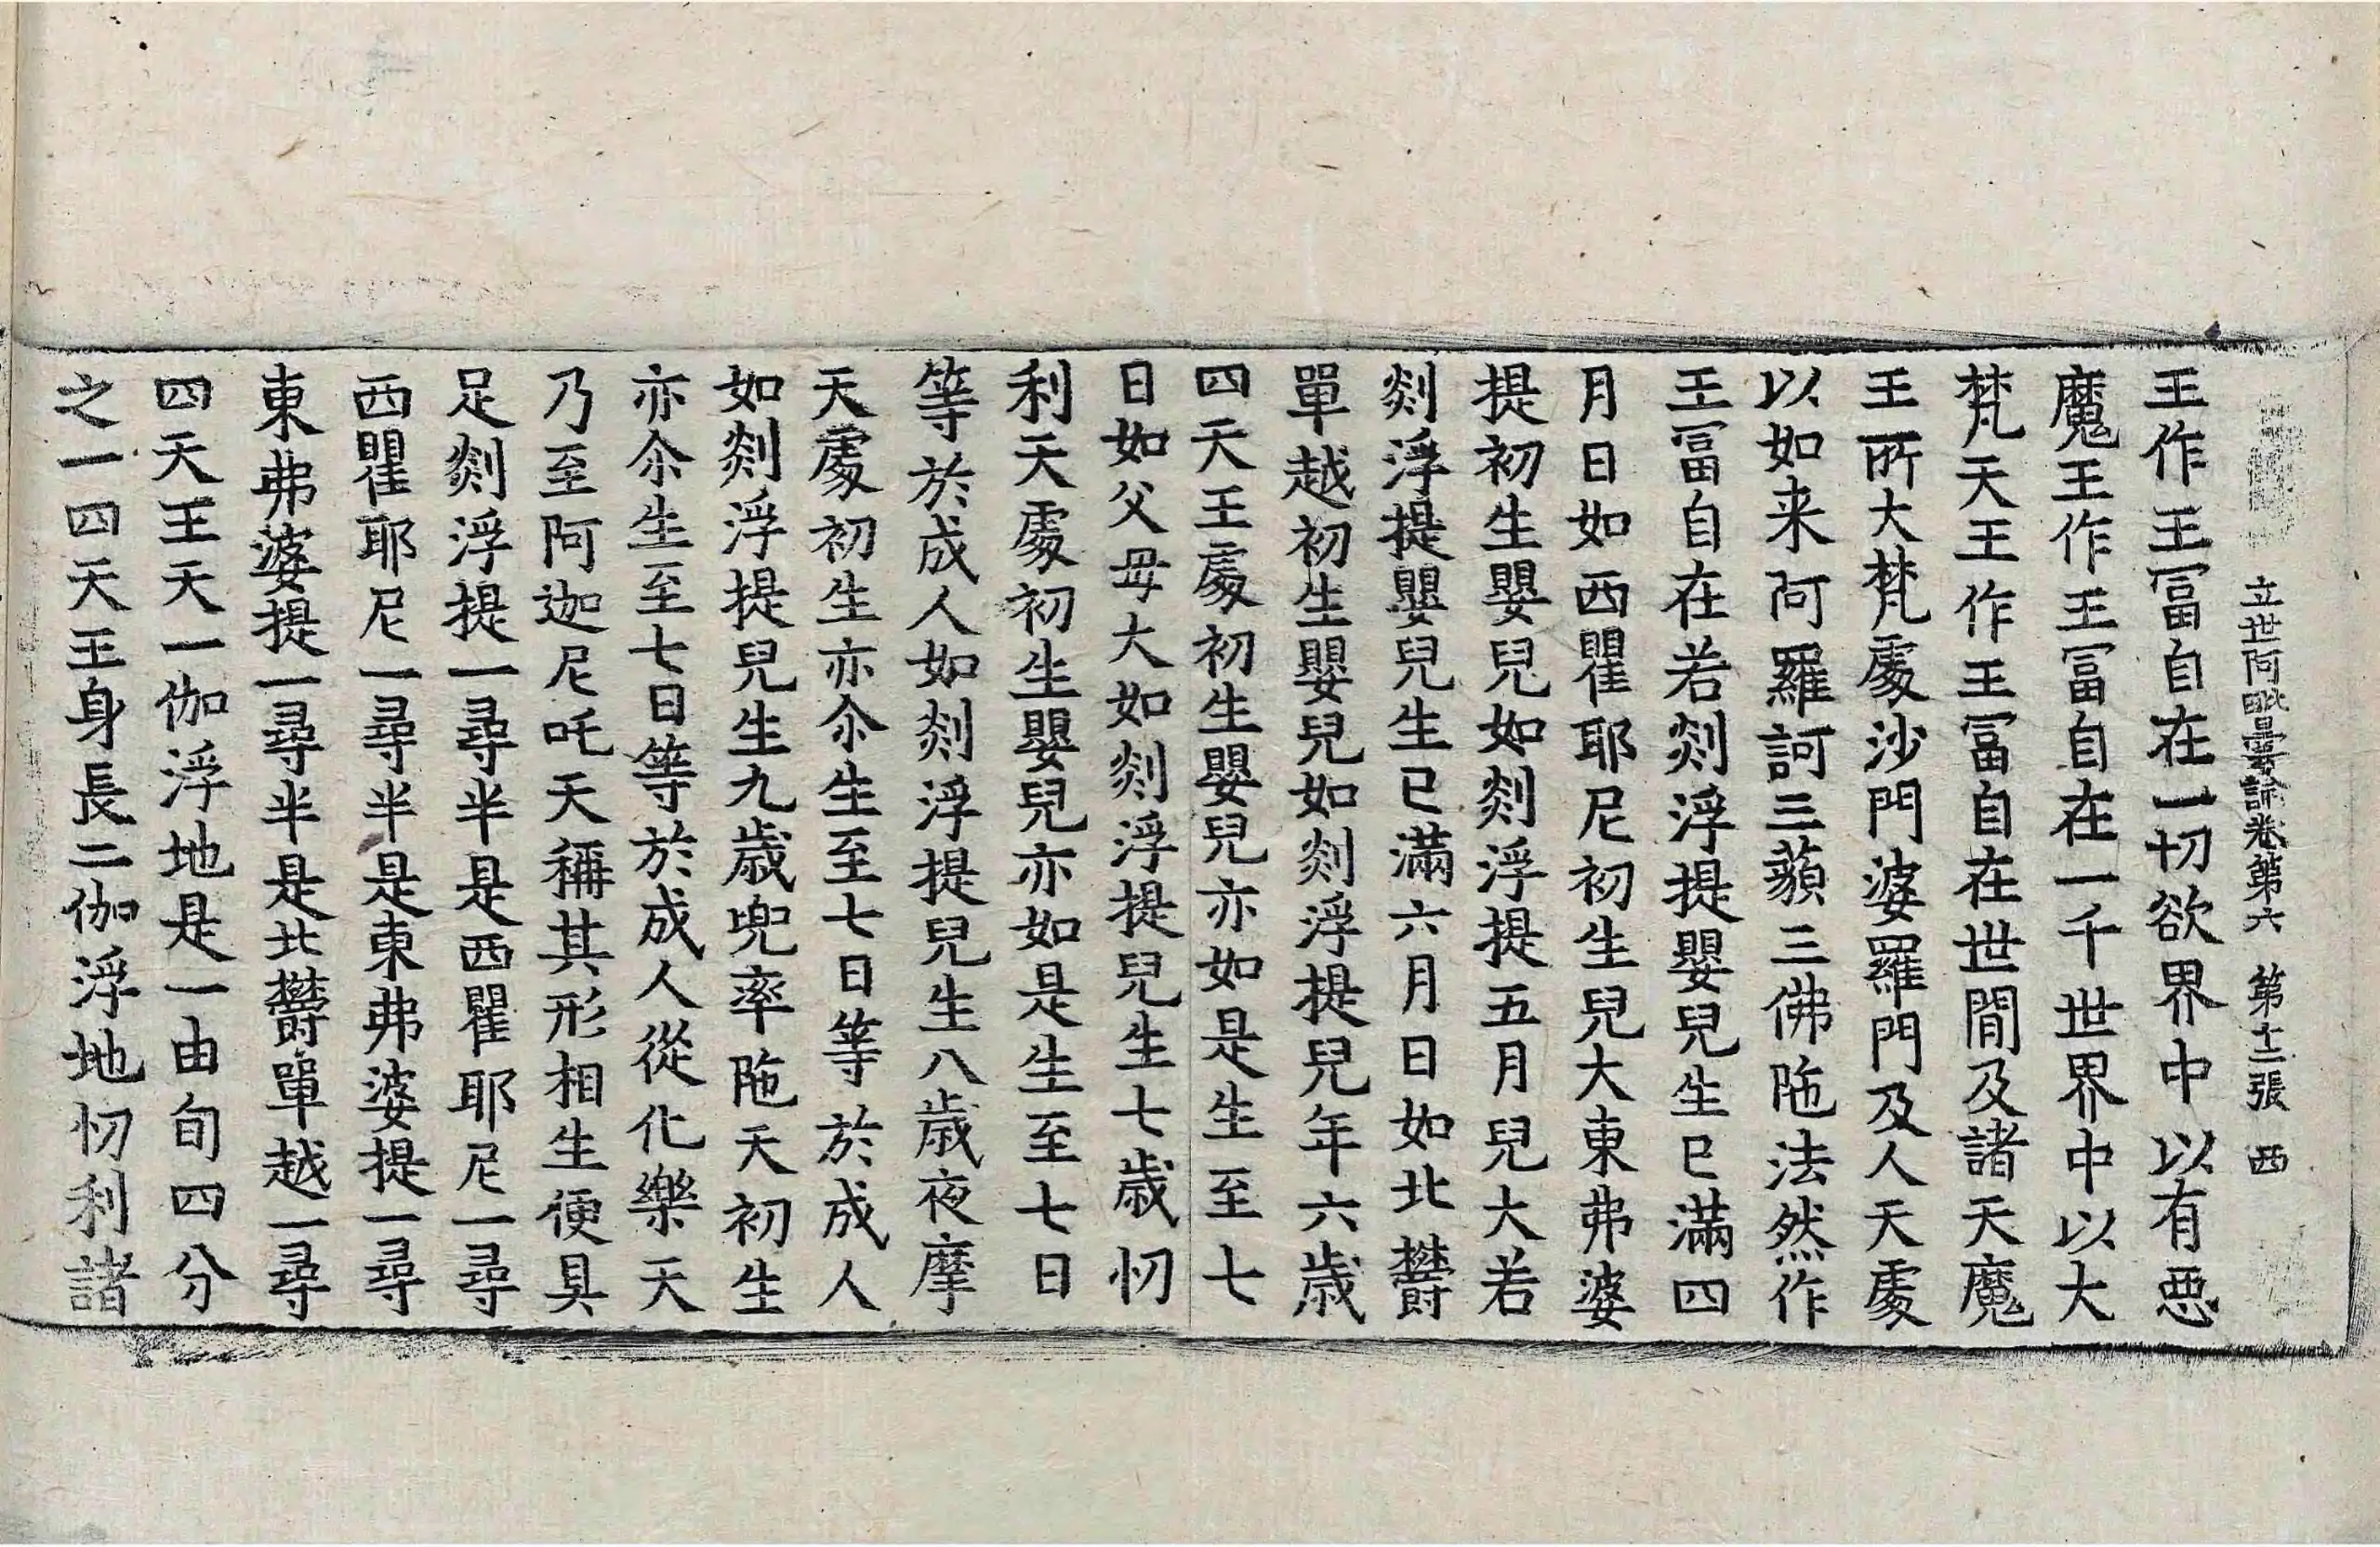 立世阿毗曇論卷第六 第十二張 西
王作王冨自在一切欲界中以有恶
魔王作王冨自在一千世界中以大
梵天王作王冨自在世間及諸天魔
王所大梵處沙門婆羅門及人天處
以如来阿羅訶三藐三佛陁法然作
王冨自在若剡浮提嬰兒生已滿四
月日如西瞿耶尼初生兒大東弗婆
提初生嬰兒如剡浮提五月兒大若
剡浮提嬰兒生已滿六月日如北欝
單越初生嬰兒如剡浮提兒年六歳
四天王處初生嬰兒亦如是生至七
日如父母大如剡浮提兒生七歳忉
利天處初生嬰兒亦如是生至七日
等於成人如剡浮提兒生八歳夜摩
天處初生亦尒生至七日等於成人
如剡浮提兒生九歳兜率陁天初生
亦尒生至七日等於成人從化樂天
乃至阿迦尼吒天稱其形相生便具
足剡浮提一尋半是西瞿耶尼一尋
西瞿耶尼一尋半是東弗婆提一尋
東弗婆提一尋半是北欝單越一尋
四天王天一伽浮地是一由旬四分
之一四天王身長二伽浮地忉利諸